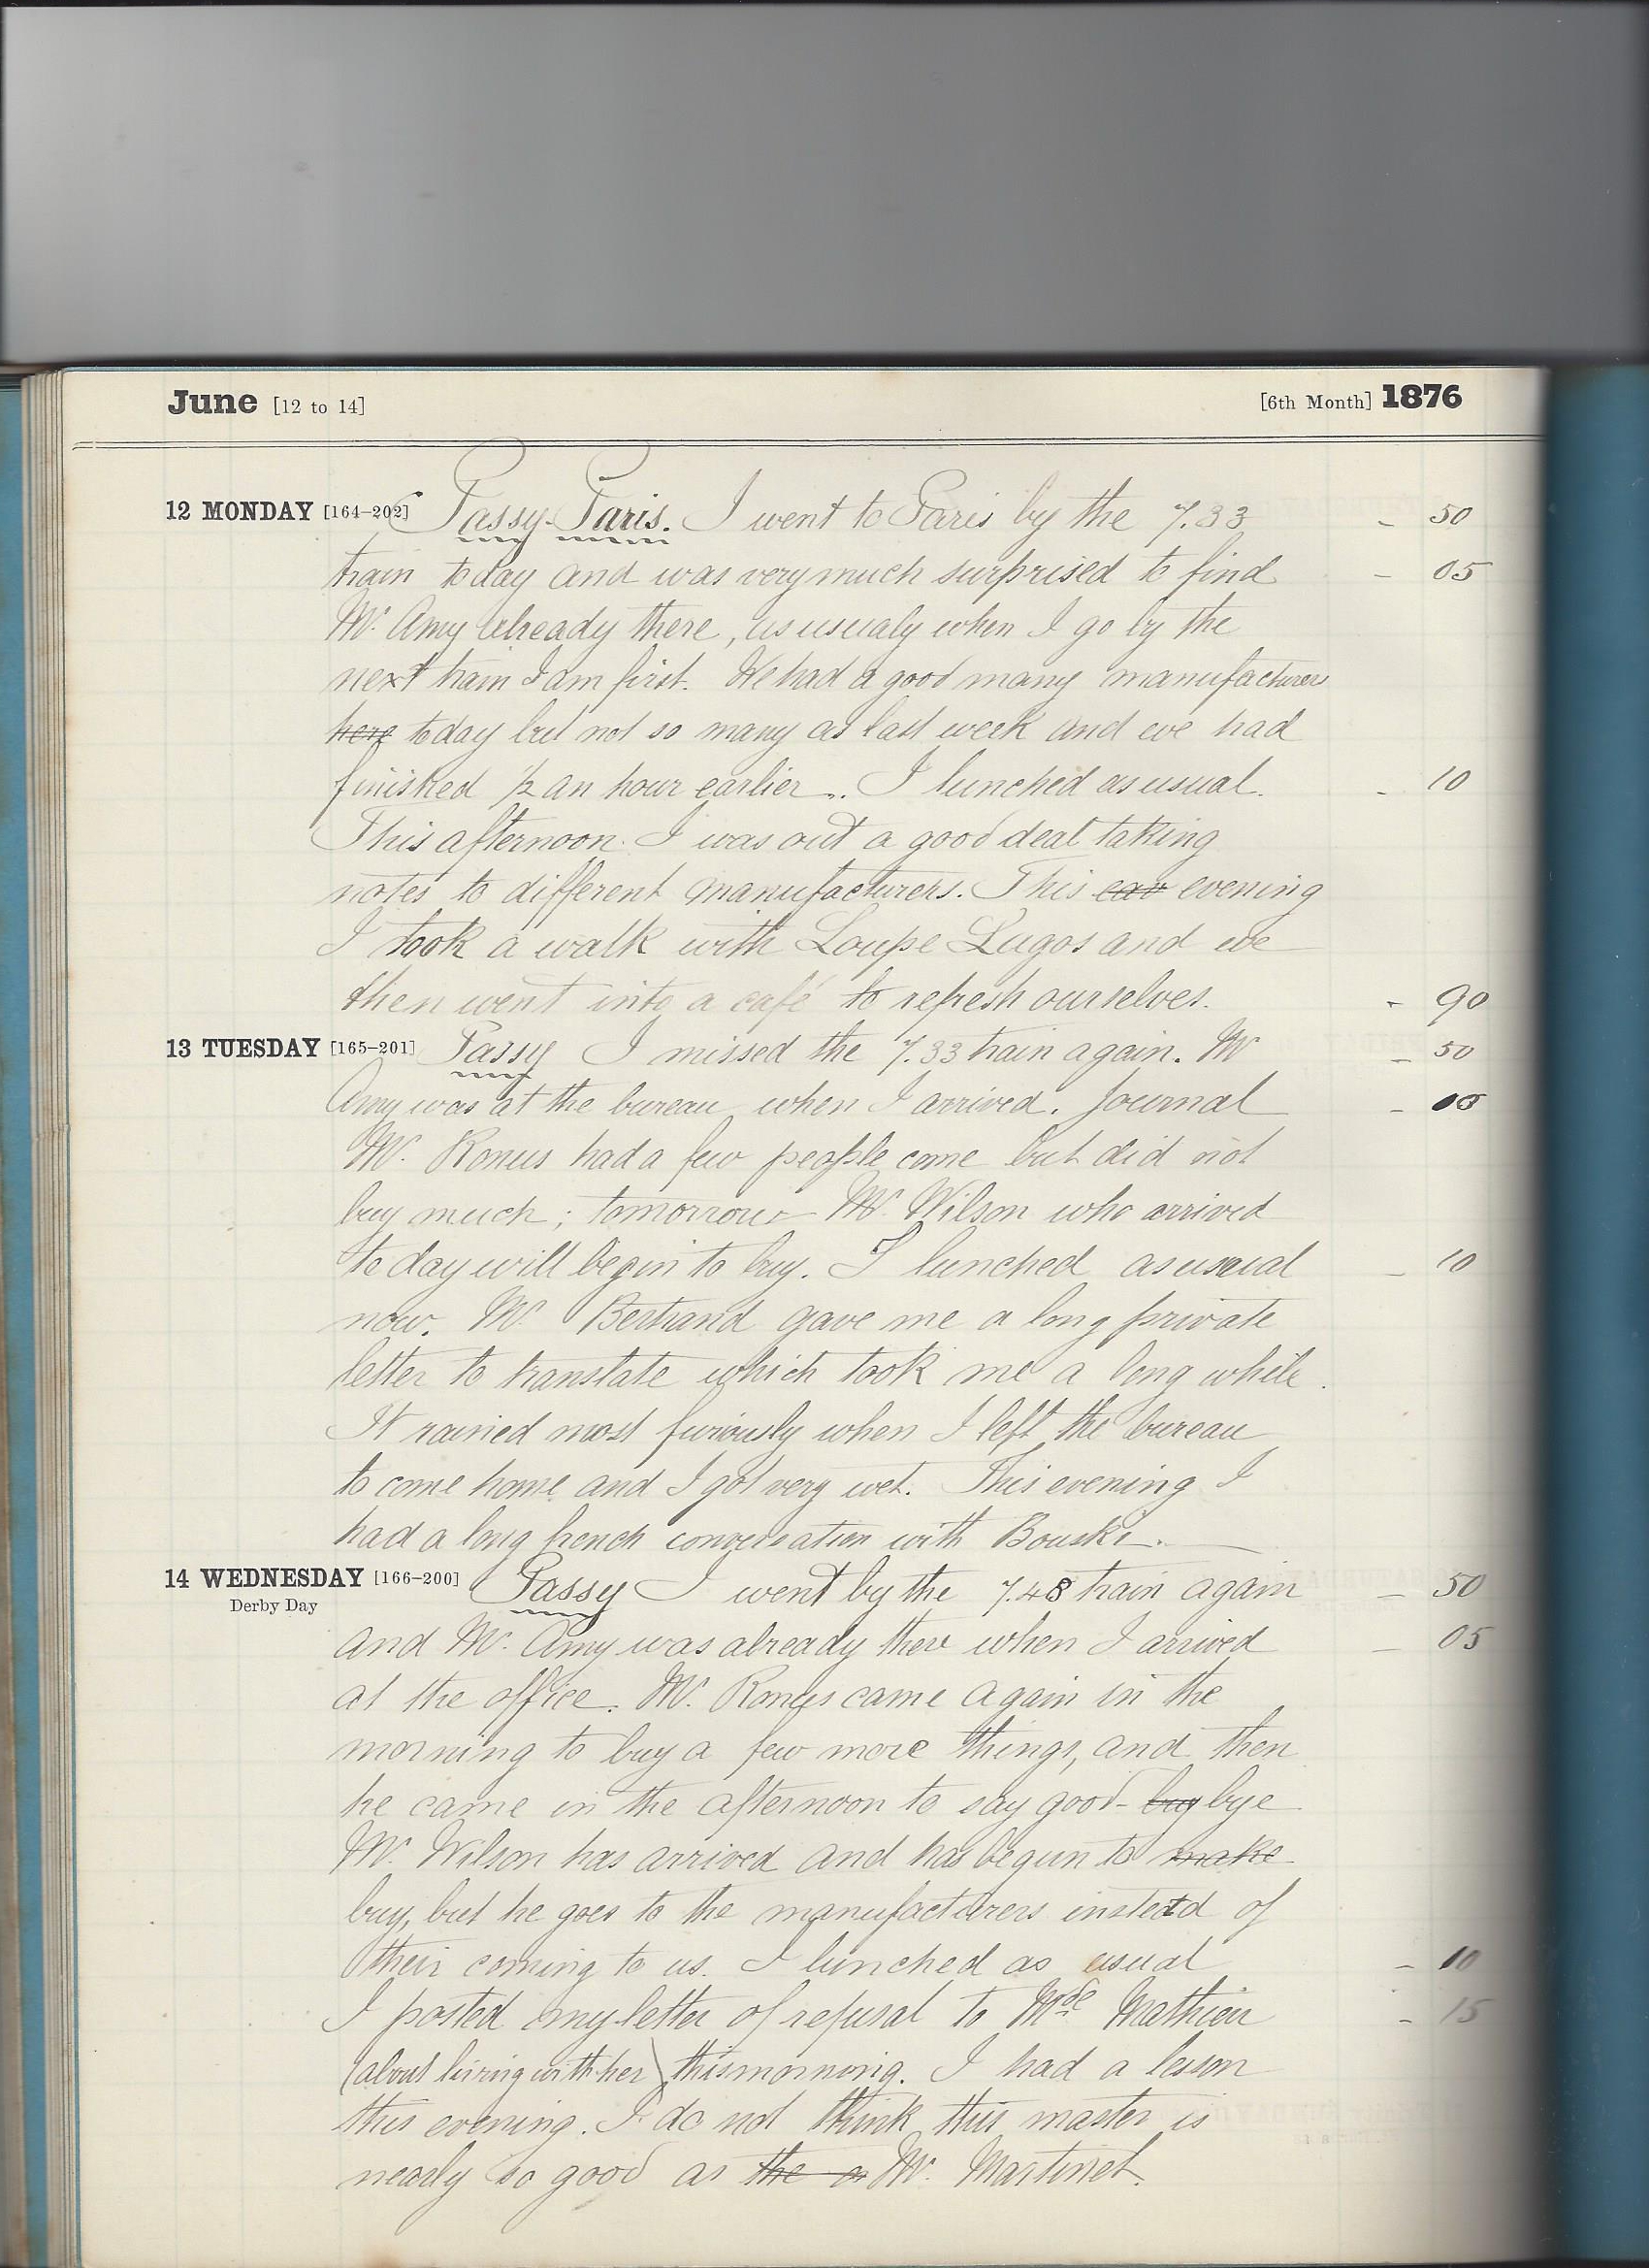 June [12 to 14] [6th Month] 1876
12 MONDAY [164-202] Passy-Paris. I went to Paris by the 7.33 - 50
train today and was very much surprised to find - 05
Mr. Amy already there, as usualy when I go by the
next train I am first. We had a good many manufacturers
here today but not so many as last week and we had
finished 1/2 an hour earlier. I lunched as usual. - 10
This afternoon I was out a good deal taking
notes to different manufacturers. This eav evening
I took a walk with Loupe Lugos and we
then went into a café to refresh ourselves. - 90
13 TUESDAY [165-201] Passy I missed the 7.33 train again. Mr - 50
Amy was at the bureau when I arrived. Journal - 05
Mr. Ronus had a few people come but did not
buy much; tomorrow Mr. Wilson who arrived
to day will begin to buy. I lunched as usual - 10
now. Mr. Bertrand gave me a long private
letter to translate which took me a long while.
It rained most furiously when I left the bureau
to come home and I got very wet. This evening I
had a long french conversation with Bouski.
14 WEDNESDAY [166-200] Passy I went by the 7.48 train again - 50
Derby Day
and Mr. Amy was already there when I arrived - 05
at the office. Mr. Ronus came again in the
morning to buy a few more things, and then
he came in the afternoon to say good-buy bye
Mr. Wilson has arrived and has begun to make
buy, but he goes to the manufacturers instead of
their coming to us. I lunched as usual - 10
I posted my letter of refusal to Mde Mathieu - 15
(about living with her) this morning. I had a lesson
this evening. I do not think this master is
nearly so good as the Mr. Martinet.